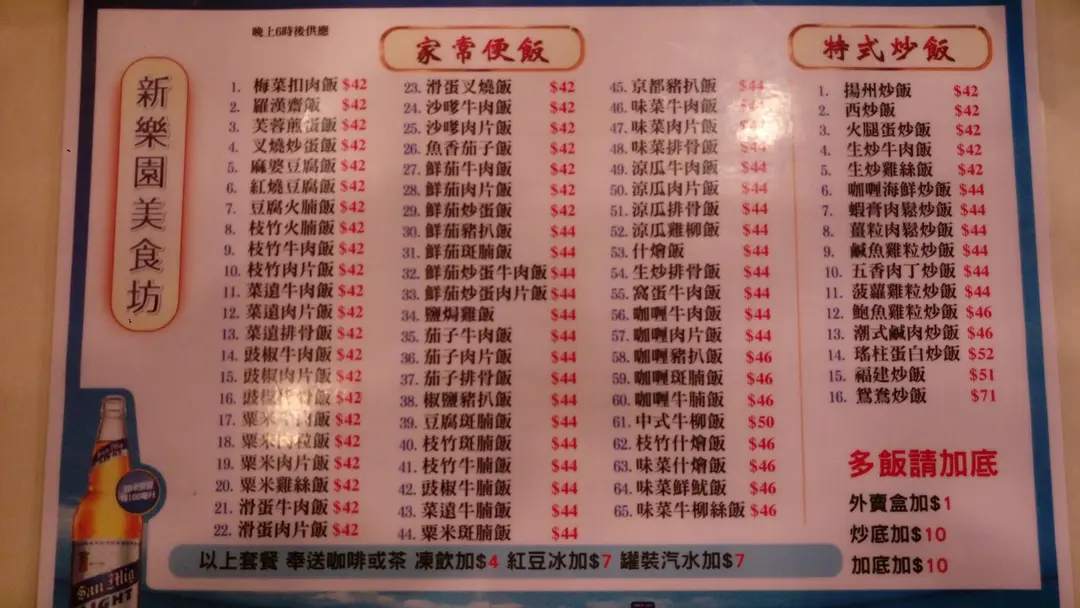 新樂園美食坊
晚上6時後供應
家常便飯
1. 梅菜扣肉飯 $42
2. 羅漢齋飯 $42
3. 芙蓉煎蛋飯 $42
4. 叉燒炒蛋飯 $42
5. 麻婆豆腐飯 $42
6. 紅燒豆腐飯 $42
7. 豆腐火腩飯 $42
8. 枝竹火腩飯 $42
9. 枝竹牛肉飯 $42
10. 枝竹肉片飯 $42
11. 菜遠牛肉飯 $42
12. 菜遠肉片飯 $42
13. 菜遠排骨飯 $42
14. 豉椒牛肉飯 $42
15. 豉椒肉片飯 $42
16. 豉椒排骨飯 $42
17. 粟米牛肉飯 $42
18. 粟米肉粒飯 $42
19. 粟米肉片飯 $42
20. 粟米雞絲飯 $42
21. 滑蛋牛肉飯 $42
22. 滑蛋肉片飯 $42
23. 滑蛋叉燒飯 $42
24. 沙嗲牛肉飯 $42
25. 沙嗲肉片飯 $42
26. 魚香茄子飯 $42
27. 鮮茄牛肉飯 $42
28. 鮮茄肉片飯 $42
29. 鮮茄炒蛋飯 $42
30. 鮮茄豬扒飯 $44
31. 鮮茄斑腩飯 $44
32. 鮮茄炒蛋牛肉飯 $44
33. 鮮茄炒蛋肉片飯 $44
34. 鹽焗雞飯 $44
35. 茄子牛肉飯 $44
36. 茄子肉片飯 $44
37. 茄子排骨飯 $44
38. 椒鹽豬扒飯 $44
39. 豆腐斑腩飯 $44
40. 枝竹斑腩飯 $44
41. 枝竹牛腩飯 $44
42. 豉椒牛腩飯 $44
43. 菜遠牛腩飯 $44
44. 粟米斑腩飯 $44
45. 京都豬扒飯 $44
46. 味菜牛肉飯 $44
47. 味菜肉片飯 $44
48. 味菜排骨飯 $44
49. 涼瓜牛肉飯 $44
50. 涼瓜肉片飯 $44
51. 涼瓜排骨飯 $44
52. 涼瓜雞柳飯 $44
53. 什燴飯 $44
54. 生炒排骨飯 $44
55. 窩蛋牛肉飯 $44
56. 咖喱牛肉飯 $44
57. 咖喱肉片飯 $44
58. 咖喱豬扒飯 $46
59. 咖喱斑腩飯 $46
60. 咖喱牛腩飯 $46
61. 中式牛柳飯 $50
62. 枝竹什燴飯 $46
63. 味菜什燴飯 $46
64. 味菜鮮魷飯 $46
65. 味菜牛柳絲飯 $46
特式炒飯
1. 揚州炒飯 $42
2. 西炒飯 $42
3. 火腿蛋炒飯 $42
4. 生炒牛肉飯 $42
5. 生炒雞絲飯 $42
6. 咖喱海鮮炒飯 $44
7. 蝦膏肉鬆炒飯 $44
8. 薑粒肉鬆炒飯 $44
9. 鹹魚雞粒炒飯 $44
10. 五香肉丁炒飯 $44
11. 菠蘿雞粒炒飯 $44
12. 鮑魚雞粒炒飯 $46
13. 潮式鹹肉炒飯 $46
14. 瑤柱蛋白炒飯 $52
15. 福建炒飯 $51
16. 鴛鴦炒飯 $71
多飯請加底
外賣盒加$1
炒底加$10
加底加$10
以上套餐 奉送咖啡或茶 凍飲加$4 紅豆冰加$7 罐裝汽水加$7
San Mig
LIGHT